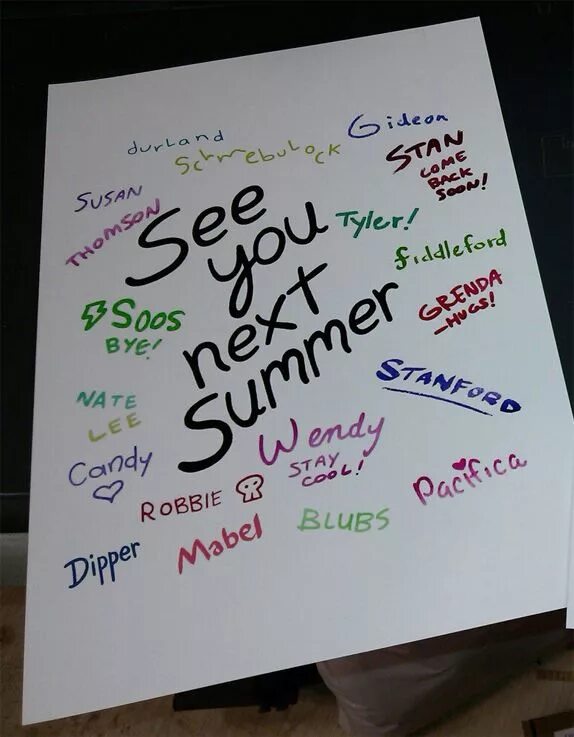 durland
Schmebulock
Gideon
STAN
COME
BACK
SOON!
SUSAN
THOMSON
See
you
next
Summer
Tyler!
fiddleford
GRENDA
-HUGS!
SOOS
BYE!
STANFORD
NATE
LEE
Candy
Wendy
STAY
COOL!
ROBBIE
Pacifica
Dipper
Mabel
BLUBS